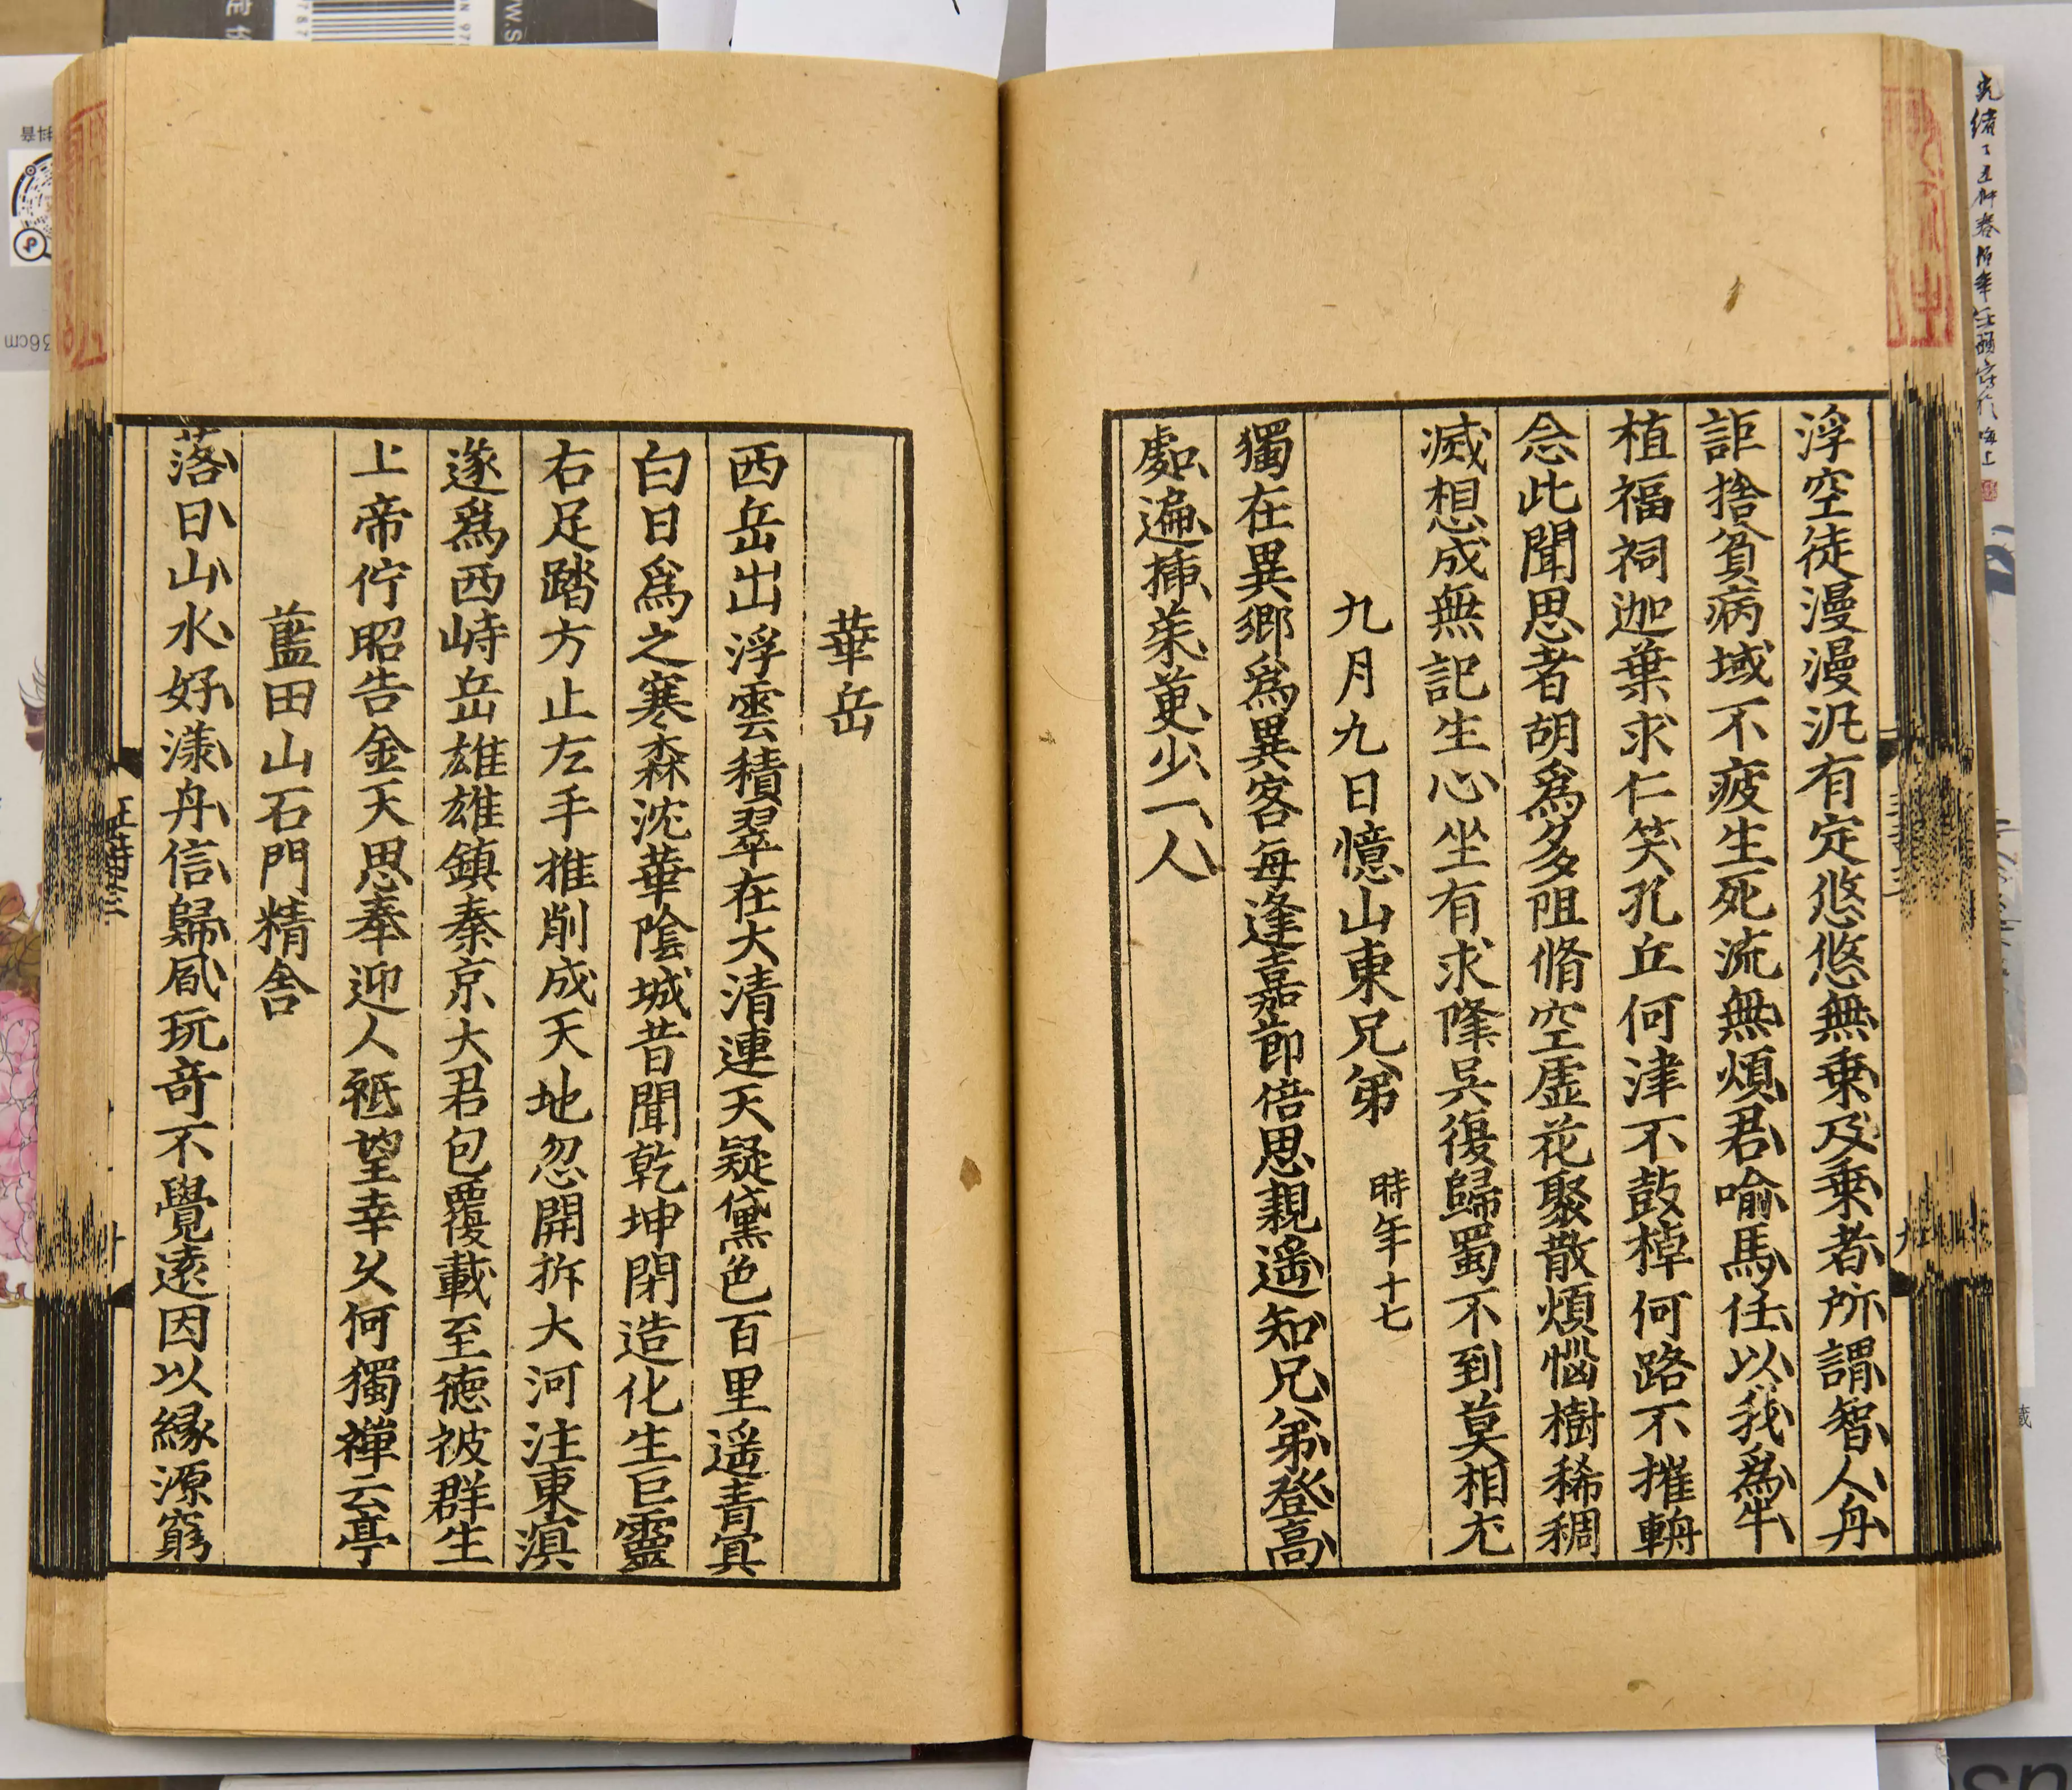 浮空徒漫漫汎有定悠悠無乗及乗者所謂智人舟
詎捨貧病域不疲生死流無煩君喻馬任以我為牛
植福祠迦葉求仁笑孔丘何津不鼓棹何路不摧輈
念此聞思者胡為多阻脩空虛花聚散煩惱樹稀稠
滅想成無記生心坐有求降吳復歸蜀不到莫相尤
九月九日憶山東兄弟 時年十七
獨在異鄉為異客每逢嘉節倍思親遥知兄弟登高
處遍插茱萸少一人
華岳
西岳出浮雲積翠在大清連天疑黛色百里遥青冥
白日為之寒森沈華陰城昔聞乾坤閉造化生巨靈
右足踏方止左手推削成天地忽開拆大河注東溟
遂為西峙岳雄雄鎮秦京大君包覆載至德被群生
上帝佇昭告金天思奉迎人祇望幸久何獨禪云亭
藍田山石門精舍
落日山水好漾舟信歸風玩奇不覺遠因以緣源窮
36cm
抖音